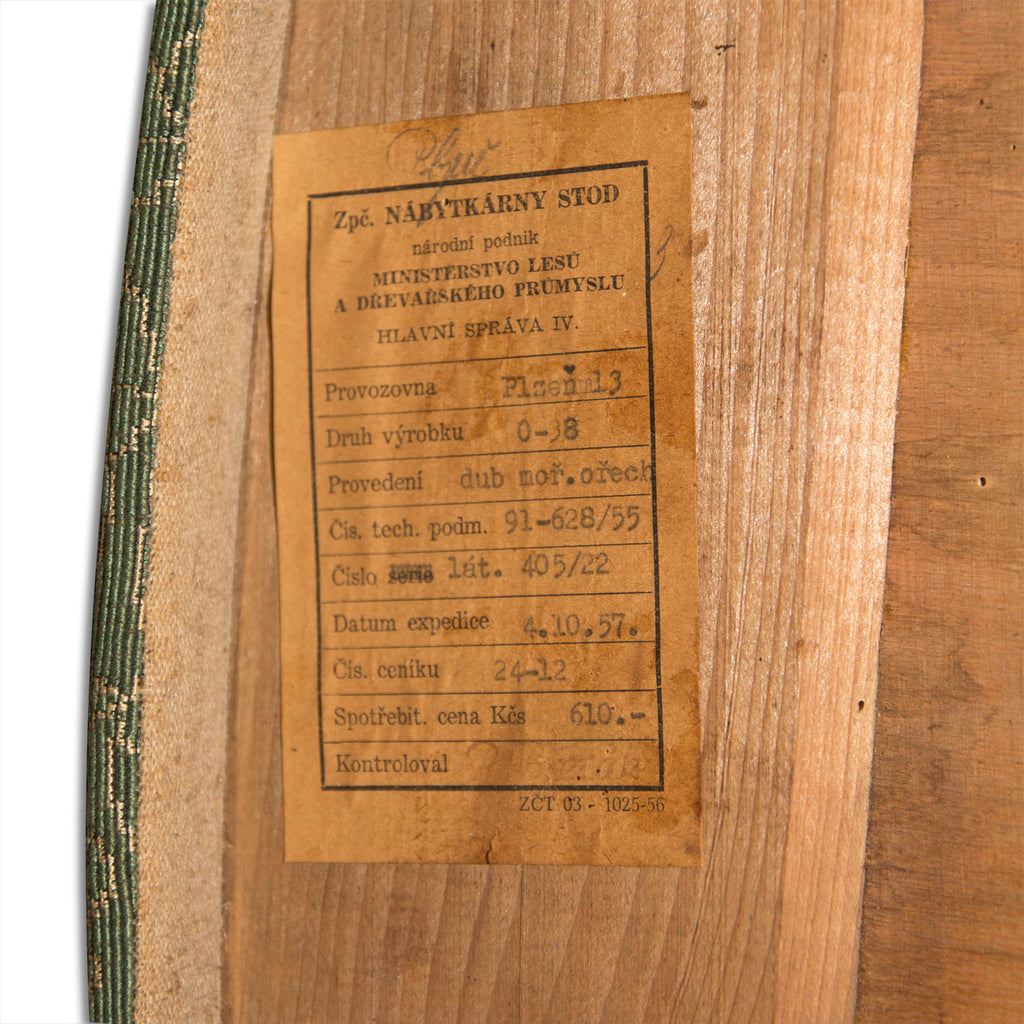 Zpč. NÁBYTKÁRNY STOD
národní podnik
MINISTERSTVO LESŮ
A DŘEVAŘSKÉHO PRŮMYSLU
HLAVNÍ SPRÁVA IV.
Provozovna Plzeň 13
Druh výrobku 0-38
Provedení dub moř.ořech
Čís. tech. podm. 91-628/55
Číslo serie lát. 405/22
Datum expedice 4.10.57.
Čís. ceníku 24-12
Spotřebit. cena Kčs 610.-
Kontroloval
ZČT 03 - 1025-56